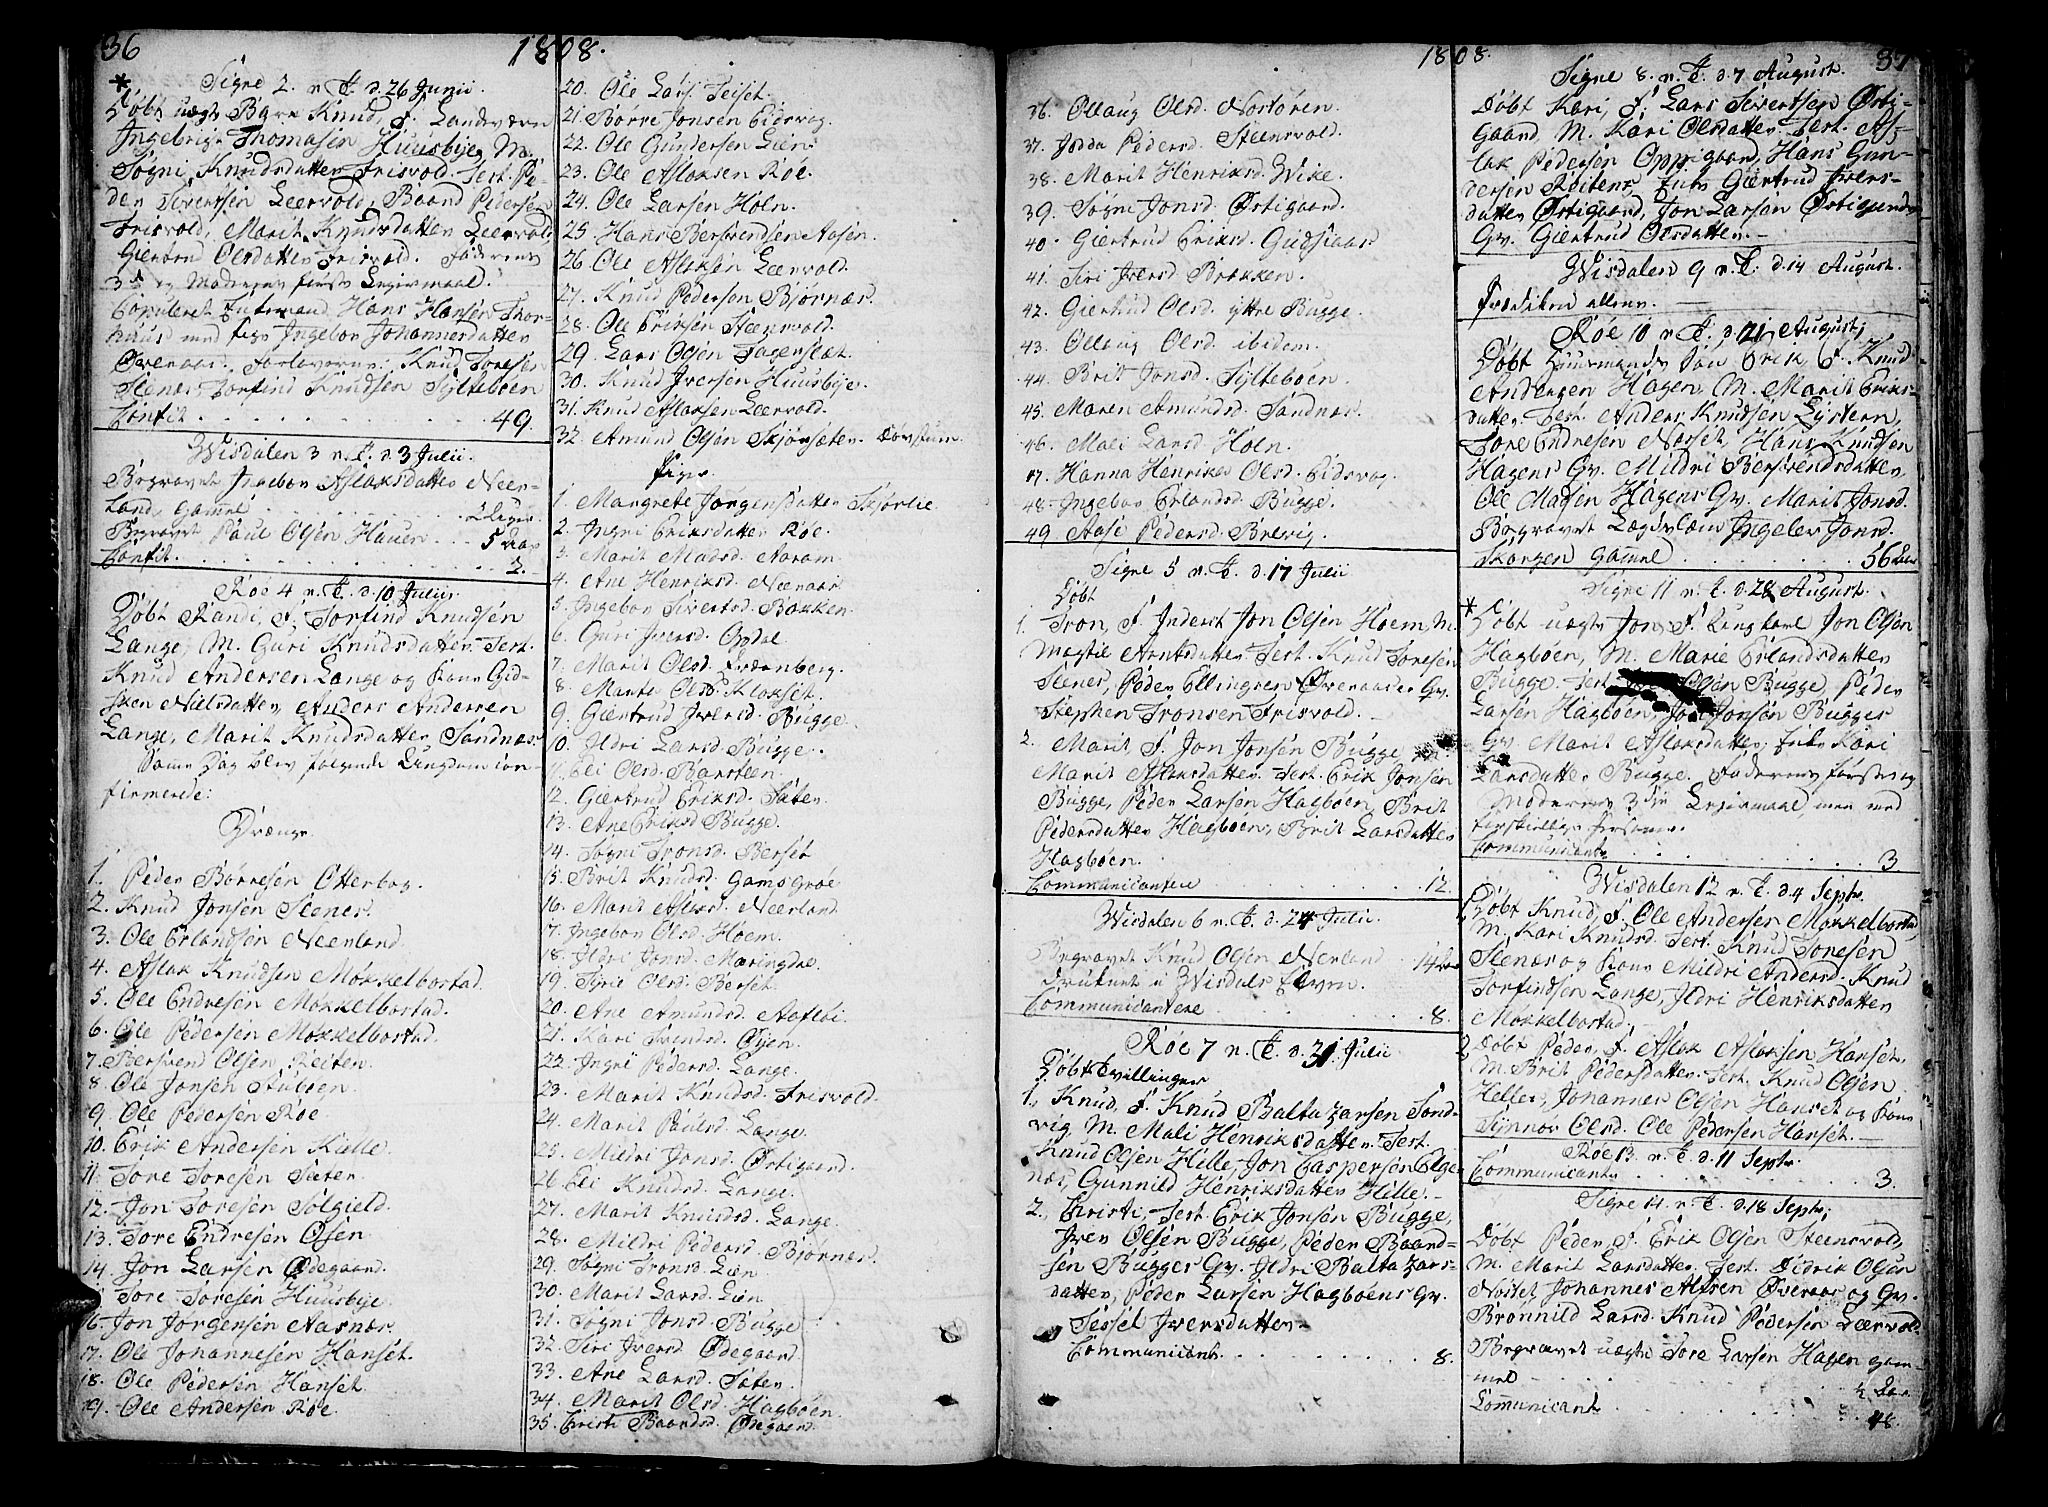 36
1808.
* Signe 2. n. T. d. 26 Junii.
Døbt uægte Barn Knud, F. Landeværn
Ingebrigt Thomasen Huusbye, M.
Søgni Knudsdatter Frisvold. Test. Pe-
der Sivertsen Leervold, Baard Pedersen
Frisvold, Marit Knudsdatter Leervold
Giertrud Olsdatter Frisvold. Faderens
3die og Moderens første Leiermaal.
Copuleret Enkemand Hans Hansen Thor-
huus med Pige Ingebor Johannesdatter
Øveraas. Forlovere: Knud Toresen
Stenes, Torfind Knudsen Sylteboen
Confit. 49.
Wisdalen 3 n. T. d. 3 Julii.
Begravet Ingebor Aslaksdatter Neer-
land, gamel
Begravet Paul Olsen Hauen 5 Dage
Confit. 2.
Røe 4 n. T. d. 10 Julii.
Døbt Randi, F. Torfind Knudsen
Lange, M. Guri Knudsdatter. Test.
Knud Andersen Lange og Kone Gid-
sken Nielsdatter, Anders Andersen
Lange, Marit Knudsdatter Sandnæs.
Samme Dag blev følgende Ungdom con-
firmerede:
Drænge.
1. Peder Børresen Otterbog.
2. Knud Jonsen Stenes.
3. Ole Erlandsen Neerland.
4. Aslak Knudsen Mokkelbostad.
5. Ole Endresen Mokkelbostad.
6. Ole Pedersen Mokkelbostad.
7. Bersvend Olsen Reiten.
8. Ole Jonsen Auboen.
9. Ole Pedersen Røe
10. Erik Andersen Kielle.
11. Tore Toresen Sæter.
12. Jon Toresen Solgield.
13. Tore Endresen Øsen
14. Jon Larsen Ødegaard.
15. Tore Toresen Huusbye.
16. Jon Jørgensen Aasnæs.
17. Ole Johannesen Hanset.
18. Ole Pedersen Hanset.
19. Ole Andersen Røe.
20. Ole Lars. Teiset.
21. Børre Jonsen Eidsvog.
22. Ole Gundersen Lien.
23. Ole Aslaksen Røe.
24. Ole Larsen Holn.
25. Hans Bersvendsen Aasen.
26. Ole Aslaksen Leervold.
27. Knud Pedersen Bjørnæs.
28. Ole Eriksen Steenvold.
29. Lars Olsen Fagerslæt.
30. Knud Iversen Huusbye.
31. Knud Aslaksen Leervold.
32. Amund Olsen Skjørsæter.
Piger.
1. Margrete Jørgensdatter Skjørlie
2. Ingri Eriksdatter Røe.
3. Marit Madsd. Aaram
4. Ane Henriksd. Neraas
5. Ingebor Sivertsd. Bakken
6. Guri Iversd. Opdal
7. Marit Olsd. Fredenberg.
8. Marta Olsd. Klokset.
9. Giertrud Iversd. Bugge.
10. Ildri Larsd. Bugge.
11. Eli Olsd. Barsteen.
12. Giertrud Eriksd. Sæter.
13. Ane Eriksd Bugge.
14. Søgni Tronsd. Berset
15. Brit Knudsd. Gamsgrøe
16. Marit Aslaksd. Neerland
17. Ingebor Olsd. Hoem.
18. Ildri Jonsd. Meringdal.
19. Syrie Olsd. Berset.
20. Ane Amundsd. Aafløi
21. Kari Svendsd. Øyen.
22. Ingri Pedersd. Lange.
23. Marit Knudsd. Frisvold.
24. Marit Paulsd. Lange.
25. Mildri Jonsd. Østigaard.
26. Eli Knudsd. Lange.
27. Marit Knudsd. Lange.
28. Mildri Pedersd. Bjørnæs.
29. Søgni Tronsd. Lien
30. Marit Larsd. Lien
31. Søgni Jonsd. Bugge
32. Siri Iversd. Ødegaard
33. Ane Larsd. Sæter.
34. Marit Olsd. Hagboen.
35. Cristi Baardsd. Ødegaard.
1808.
37
36. Ollaug Olsd. Nostøren.
37. Joda Pedersd. Steensvold.
38. Marit Henriksd. Wike.
39. Søgni Jonsd. Østigaard.
40. Giertrud Eriksd. Gudsiaas
41. Siri Iversd. Brækken.
42. Giertrud Olsd. yttre Bugge.
43. Ollaug Olsd. ibidem.
44. Brit Jonsd. Sylteboen.
45. Maren Amundsd. Sandnæs.
46. Mali Larsd. Holn.
47. Hanna Henrika Olsd. Eidsvog.
48. Ingebor Erlandsd. Bugge.
49 Aase Pedersd. Brevig.
Signe 5 n. T. d. 17 Julii
Døbt
1. Tron, F. Inderst Jon Olsen Hoem, M.
Magtil Arntsdatter. Test. Knud Toresen
Stenes, Peder Ellingsen Øveraas Gv.
Stephen Tronsen Frisvold.
2. Marit F. Jon Jonsen Bugge M.
Marit Aslaksdatter. Test. Erik Jonsen
Bugge, Peder Larsen Hagboen, Brit
Pedersdatter Hagboen, Brit Larsdatter
Hagboen.
Communicantere 12.
Wisdalen 6 n. T. d. 24 Julii.
Begravet Knud Olsen Neerland 14
druknet i Wisdals Elven.
Communicantere 8.
Røe 7 n. T. d. 31 Julii
Døbt Tvillinger
1. Knud, F. Knud Baltazarsen Sand-
vig, M. Mali Henriksdatter. Test.
Knud Olsen Hille, Jon Caspersen Elge-
næs, Gunnild Henriksdatter Hille.
2. Christi, Test. Erik Jonsen Bugge,
Iver Olsen Bugge, Peder Baard-
sen Bugges Gv. Ildri Baltazars-
datter, Peder Larsen Hagboens Gv.
Sessel Iversdatter
Communicant. 8.
Signe 8. n. T. d. 7 August.
Døbt Kari, F. Lars Sivertsen Østi-
gaard, M. Kari Olsdatter. Test. As-
lak Pedersen Oppigaard, Hans Gun-
dersen Roitens Enke Giertrud Ivers-
datter Østigaard, Jon Larsen Østigaards
Gv. Giertrud Olsdatter.
Wisdalen 9 n. T. d. 14 August.
Prædiken allene.
Røe 10 n. T. d. 21 August,
Døbt Huusmands Søn Erik F. Knud
Andersen Hagen, M. Marit Eriks-
datter Test. Anders Knudsen Lystern,
Tore Endresen Norset, Hans Knudsen
Hagens Gv. Mildri Bersvendsdatter,
Ole Madsen Hagens Gv. Marit Jonsd.
Begravet Lægdslem Ingebor Jonsd.
Skorgen gamel 56
Signe 11 n. T. d. 28 August.
* Døbt uægte Jon, F. Ungkarl Jon Olsen
Hagboen, M. Marie Erlandsdatter
Bugge. Test. Olsen Bugge, Peder
Larsen Hagboen, Jon Jonsen Bugges
Gv. Marit Aslaksdatter, Enke Kari
Larsdatter Bugge. Faderens første og
Moderens 3die Leiermaal, men med
forskiellige Personer.
Communicant. 3.
Wisdalen 12 n. T. d. 4 Septr.
1, Døbt Knud, F. Ole Andersen Mokkelbostad
M. Kari Knudsd. Test. Knud Toresen
Stenæs og Kone Mildri Andersd. Knud
Torfindsen Lange, Ildri Henriksdatter
Mokkelbostad.
2, Døbt Peder, F. Aslak Aslaksen Hanset.
M. Brit Pedersdatter. Test. Knud Olsen
Helle, Johannes Olsen Hanset og Kone
Synnøv Olsd. Ole Pedersen Hanset.
Røe 13. n. T. d. 11 Septr.
Communicant. 3.
Signe 14. n. T. d. 18 Septr,
Døbt Peder, F. Erik Olsen Steensvold,
M. Marit Larsdatter. Test. Didrik Olsen
Nostet, Johannes Alfsen Øveraas og Gv.
Brønnild Larsd. Knud Pedersen Lærvold.
Begravet uægte Tore Larsen Hagen gam-
mel ½
Communicant 48.